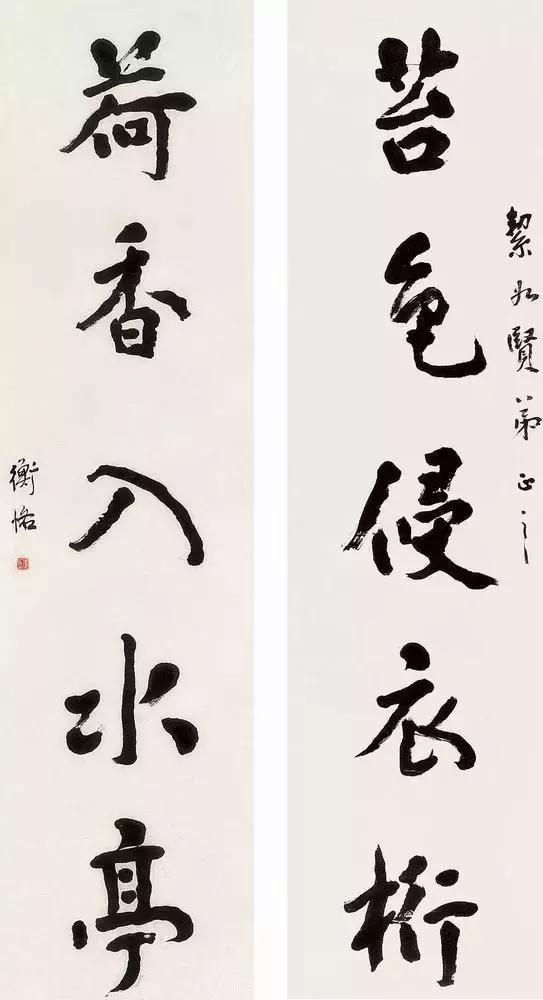 絜如賢弟正之
苔色侵衣桁
荷香入水亭
衡恪